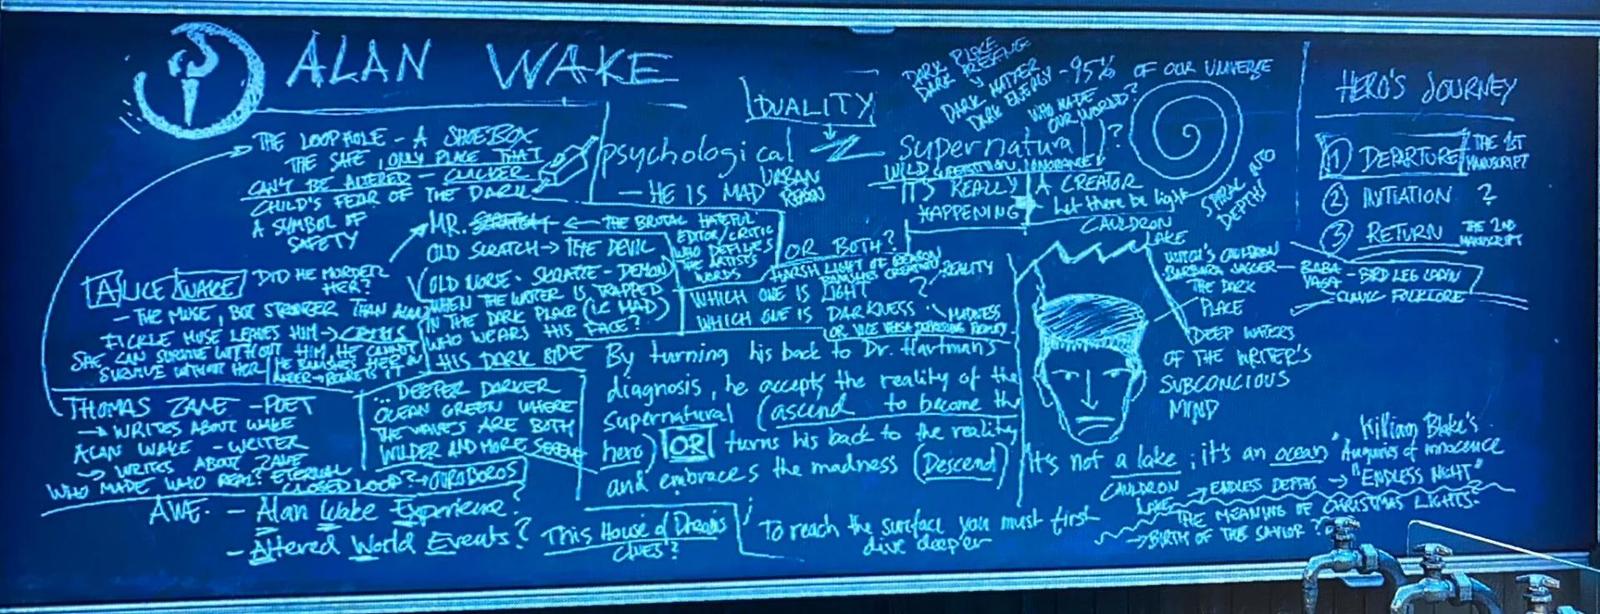 ALAN WAKE
THE LOOPHOLE - A SHOEBOX
THE SAFE, ONLY PLACE THAT
CAN'T BE ALTERED - CLICKER
CHILD'S FEAR OF THE DARK
A SYMBOL OF
SAFETY
DUALITY
psychological
- HE IS MAD
URBAN
REASON
DARK PLACE
DARK PRESENCE
DARK MATTER
DARK ENERGY - 95% OF OUR UNIVERSE
WHO MADE
OUR WORLD?
supernatural?
WILD SUPERSTITION, IGNORANCE
- IT'S REALLY
HAPPENING
A CREATOR
Let there be light
SPIRAL INTO
DEPTHS
HERO'S JOURNEY
1 DEPARTURE THE 1ST
MANUSCRIPT
2 INITIATION ?
3 RETURN THE 2ND
MANUSCRIPT
MR. SCRATCH ← THE BRUTAL HATEFUL
EDITOR/CRITIC
WHO DEFILES
THE ARTISTS
WORDS
OLD SCRATCH → THE DEVIL
OLD NORSE - SKRATTE - DEMON
WHEN THE WRITER IS TRAPPED
IN THE DARK PLACE (IE MAD)
WHO WEARS HIS
FACE?
HIS DARK SIDE
OR BOTH?
HARSH LIGHT OF REASON
BANISHES CREATIVITY
WHICH ONE IS LIGHT ? REALITY
WHICH ONE IS DARKNESS MADNESS
OR VICE VERSA DEPRESSING REALITY
ALICE WAKE DID HE MURDER
HER?
- THE MUSE, BUT STRONGER THAN ALAN
FICKLE MUSE LEAVES HIM → CRISIS
SHE CAN SURVIVE WITHOUT HIM, HE CANNOT
SURVIVE WITHOUT HER
HE BANISHES HER IN
ANGER → REGRETS IT
THOMAS ZANE - POET
→ WRITES ABOUT WAKE
ALAN WAKE - WRITER
→ WRITES ABOUT ZANE
WHO MADE WHO REAL? ETERNAL
CLOSED LOOP? → OUROBOROS
... DEEPER DARKER
OCEAN GREEN WHERE
THE WAVES ARE BOTH
WILDER AND MORE SERENE
By turning his back to Dr. Hartman's
diagnosis, he accepts the reality of the
supernatural (ascend to become the
hero) OR turns his back to the reality
and embraces the madness (Descend)
CAULDRON
LAKE
WITCH'S CAULDRON
BARBARA JAGGER
THE DARK
PLACE
BABA
YAGA
- BIRD LEG CABIN
- SLAVIC FOLKLORE
DEEP WATERS
OF THE WRITER'S
SUBCONCIOUS
MIND
It's not a lake; it's an ocean
CAULDRON
LAKE
William Blake's
Auguries of Innocence
→ ENDLESS DEPTHS → "ENDLESS NIGHT"
THE MEANING OF CHRISTMAS LIGHTS?
→ BIRTH OF THE SAVIOR?
AWE - Alan Wake Experience?
- Altered World Events?
This House of Dreams
CLUES?
To reach the surface you must first
dive deeper